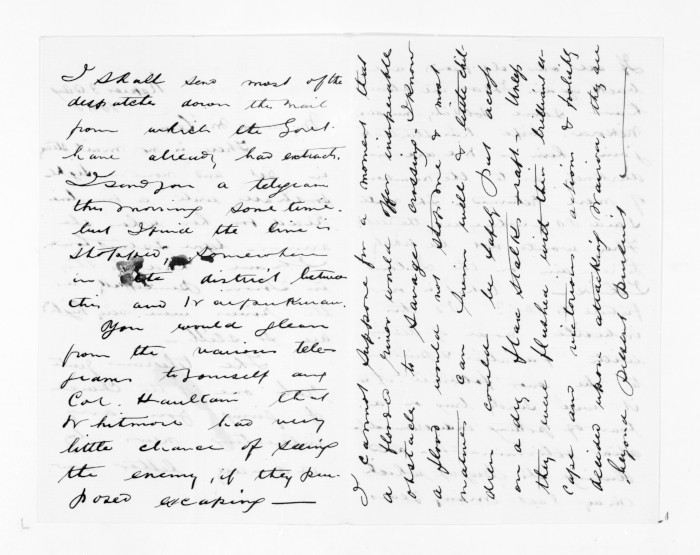 I shall send most of the
despatches down the mail
from which the Govt
have already had extracts.
I send you a telegram
this morning some time.
but I find the line is
stopped, somewhere
in the district between
this and Waipukurau.
You would glean
from the various tele-
grams to yourself and
Col. Haultain that
Whitmore had very
little chance of seeing
the enemy, if they pur-
posed escaping —
I cannot suppose for a moment that
a flooded river would offer insuperable
obstacles to savages crossing. I know
a flood would not stop one & most
natives can swim well & little chil-
dren could be safely put across
on a dry flax stalks raft. Unless
they were flushed with their brilliant es-
cape and victorious actions & foolishly
decided upon attacking Wairoa they are
beyond present pursuit